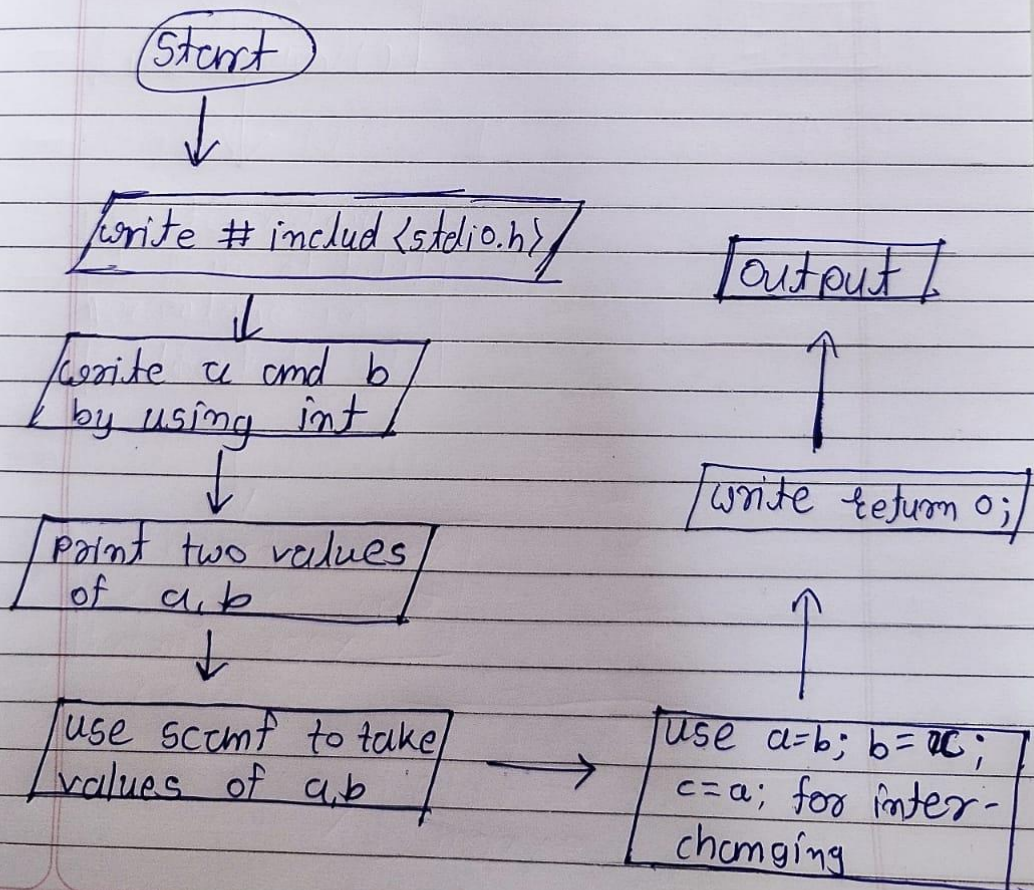 Start
write # includ <stdio.h>
write a and b
by using int
print two values
of a, b
use scanf to take
values of a,b
use a=b; b=c;
c=a; for inter-
changing
write return 0;
output